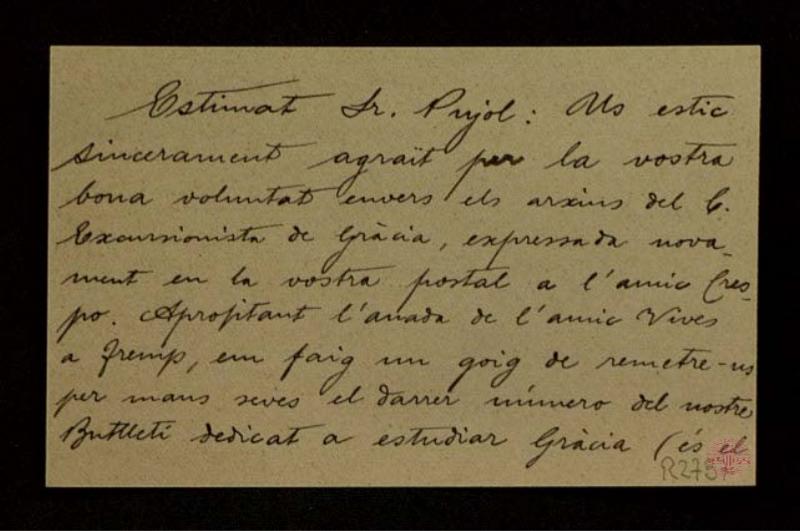 Estimat Sr. Pujol: Us estic
sincerament agraït per la vostra
bona voluntat envers els arxius del C.
Excursionista de Gràcia, expressada nova-
ment en la vostra postal a l'amic Cres-
po. Aprofitant l'anada de l'amic Vives
a Tremp, em faig un goig de remetre-us
per mans seves el darrer número del nostre
Butlletí dedicat a estudiar Gràcia (és el